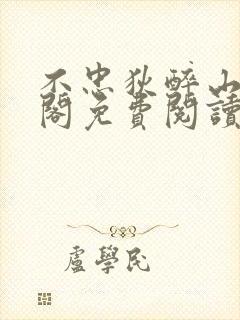 不忠狄醉山
閣免費閱讀
盧學民